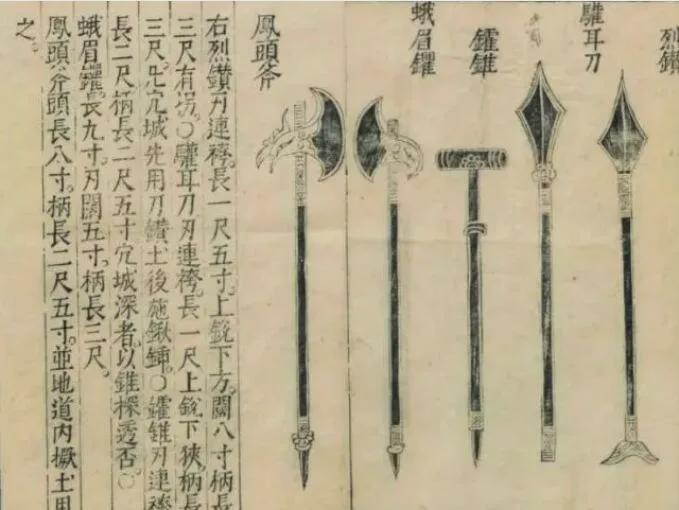 烈鑽
驩耳刀
鑵錐
蛾眉钁
鳳頭斧
右烈鑽刃連袴。長一尺五寸。上銳下方。闊八寸柄長
三尺有拐。〇驩耳刀刃連袴。長一尺上銳下狹。柄長
三尺。凡穴城先用刀鑽土後施鍬鍤。〇鑵錐刃連袴
長二尺柄長一尺五寸穴城深者。以錐探透否〇
蛾眉钁。長九寸。刃闊五寸。柄長三尺。
鳳頭斧頭長八寸。柄長二尺五寸。並地道內撅土用
之。